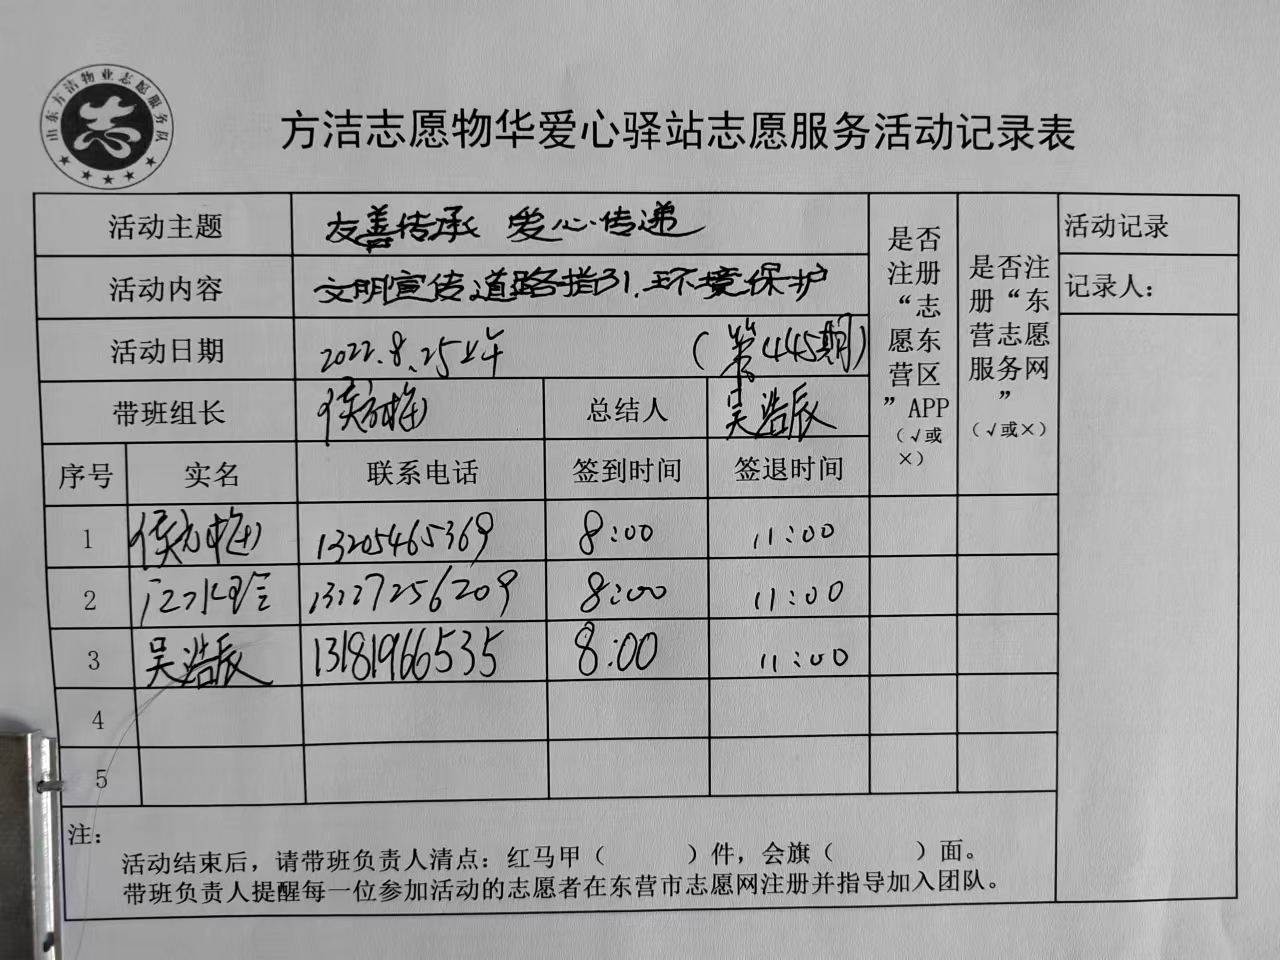 山东方洁物业志愿服务队
志
方洁志愿物华爱心驿站志愿服务活动记录表
活动主题 友善传承 爱心传递
活动内容 文明宣传、道路指引、环境保护
活动日期 2022.8.25上午 (第445期)
带班组长 侯方梅 总结人 吴浩辰
是否注册“志愿东营区”APP（√或×）
是否注册“东营志愿服务网”（√或×）
活动记录
记录人：
序号 实名 联系电话 签到时间 签退时间
1 侯方梅 13205465369 8:00 11:00
2 13127256209 8:00 11:00
3 吴浩辰 13181966535 8:00 11:00
4
5
注：
活动结束后，请带班负责人清点：红马甲（ ）件，会旗（ ）面。
带班负责人提醒每一位参加活动的志愿者在东营市志愿网注册并指导加入团队。